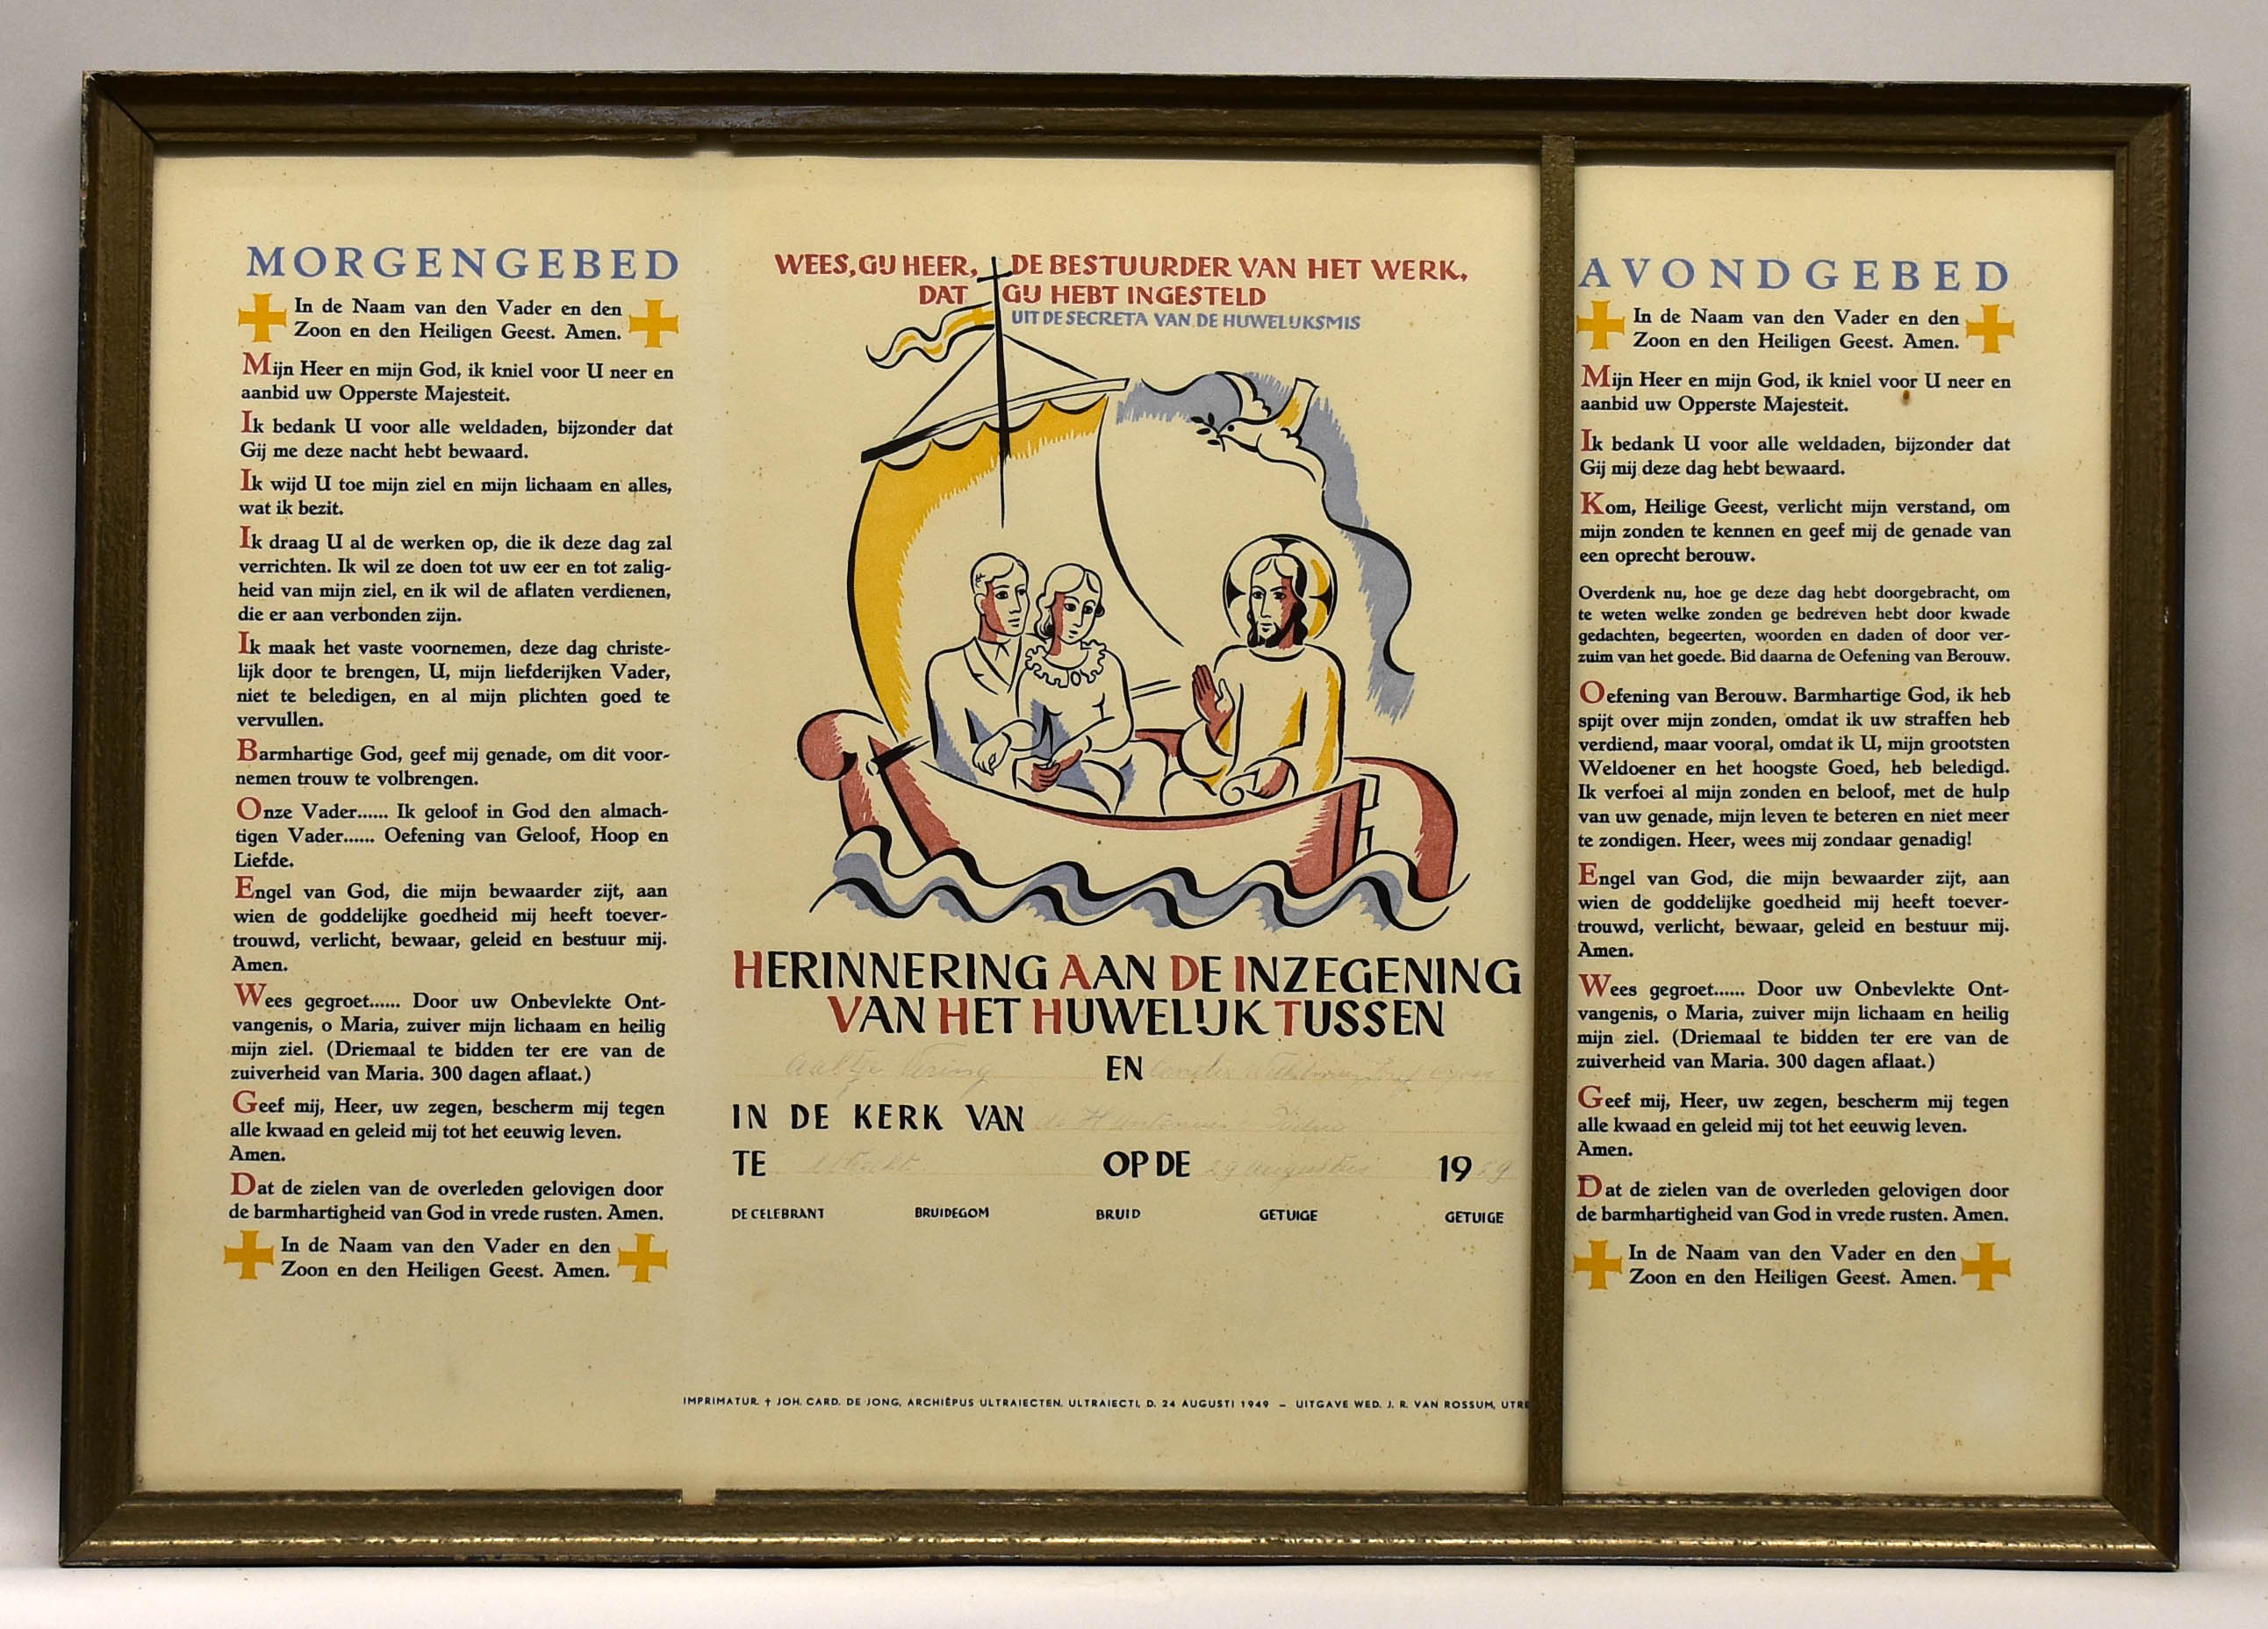 MORGENGEBED
In de Naam van den Vader en den
Zoon en den Heiligen Geest. Amen.
Mijn Heer en mijn God, ik kniel voor U neer en
aanbid uw Opperste Majesteit.
Ik bedank U voor alle weldaden, bijzonder dat
Gij me deze nacht hebt bewaard.
Ik wijd U toe mijn ziel en mijn lichaam en alles,
wat ik bezit.
Ik draag U al de werken op, die ik deze dag zal
verrichten. Ik wil ze doen tot uw eer en tot zalig-
heid van mijn ziel, en ik wil de aflaten verdienen,
die er aan verbonden zijn.
Ik maak het vaste voornemen, deze dag christe-
lijk door te brengen, U, mijn liefderijken Vader,
niet te beledigen, en al mijn plichten goed te
vervullen.
Barmhartige God, geef mij genade, om dit voor-
nemen trouw te volbrengen.
Onze Vader...... Ik geloof in God den almach-
tigen Vader...... Oefening van Geloof, Hoop en
Liefde.
Engel van God, die mijn bewaarder zijt, aan
wien de goddelijke goedheid mij heeft toever-
trouwd, verlicht, bewaar, geleid en bestuur mij.
Amen.
Wees gegroet...... Door uw Onbevlekte Ont-
vangenis, o Maria, zuiver mijn lichaam en heilig
mijn ziel. (Driemaal te bidden ter ere van de
zuiverheid van Maria. 300 dagen aflaat.)
Geef mij, Heer, uw zegen, bescherm mij tegen
alle kwaad en geleid mij tot het eeuwig leven.
Amen.
Dat de zielen van de overleden gelovigen door
de barmhartigheid van God in vrede rusten. Amen.
In de Naam van den Vader en den
Zoon en den Heiligen Geest. Amen.
WEES, GIJ HEER, DE BESTUURDER VAN HET WERK,
DAT GIJ HEBT INGESTELD
UIT DE SECRETA VAN DE HUWELIJKSMIS
HERINNERING AAN DE INZEGENING
VAN HET HUWELIJK TUSSEN
Aaltje EN
IN DE KERK VAN
TE Utrecht OP DE 29 Augustus 19
DE CELEBRANT BRUIDEGOM BRUID GETUIGE GETUIGE
IMPRIMATUR, † JOH. CARD. DE JONG, ARCHIËPUS ULTRAIECTEN. ULTRAIECTI, D. 24 AUGUSTI 1949 – UITGAVE WED. J. R. VAN ROSSUM, UTRE
AVONDGEBED
In de Naam van den Vader en den
Zoon en den Heiligen Geest. Amen.
Mijn Heer en mijn God, ik kniel voor U neer en
aanbid uw Opperste Majesteit.
Ik bedank U voor alle weldaden, bijzonder dat
Gij mij deze dag hebt bewaard.
Kom, Heilige Geest, verlicht mijn verstand, om
mijn zonden te kennen en geef mij de genade van
een oprecht berouw.
Overdenk nu, hoe ge deze dag hebt doorgebracht, om
te weten welke zonden ge bedreven hebt door kwade
gedachten, begeerten, woorden en daden of door ver-
zuim van het goede. Bid daarna de Oefening van Berouw.
Oefening van Berouw. Barmhartige God, ik heb
spijt over mijn zonden, omdat ik uw straffen heb
verdiend, maar vooral, omdat ik U, mijn grootsten
Weldoener en het hoogste Goed, heb beledigd.
Ik verfoei al mijn zonden en beloof, met de hulp
van uw genade, mijn leven te beteren en niet meer
te zondigen. Heer, wees mij zondaar genadig!
Engel van God, die mijn bewaarder zijt, aan
wien de goddelijke goedheid mij heeft toever-
trouwd, verlicht, bewaar, geleid en bestuur mij.
Amen.
Wees gegroet...... Door uw Onbevlekte Ont-
vangenis, o Maria, zuiver mijn lichaam en heilig
mijn ziel. (Driemaal te bidden ter ere van de
zuiverheid van Maria. 300 dagen aflaat.)
Geef mij, Heer, uw zegen, bescherm mij tegen
alle kwaad en geleid mij tot het eeuwig leven.
Amen.
Dat de zielen van de overleden gelovigen door
de barmhartigheid van God in vrede rusten. Amen.
In de Naam van den Vader en den
Zoon en den Heiligen Geest. Amen.